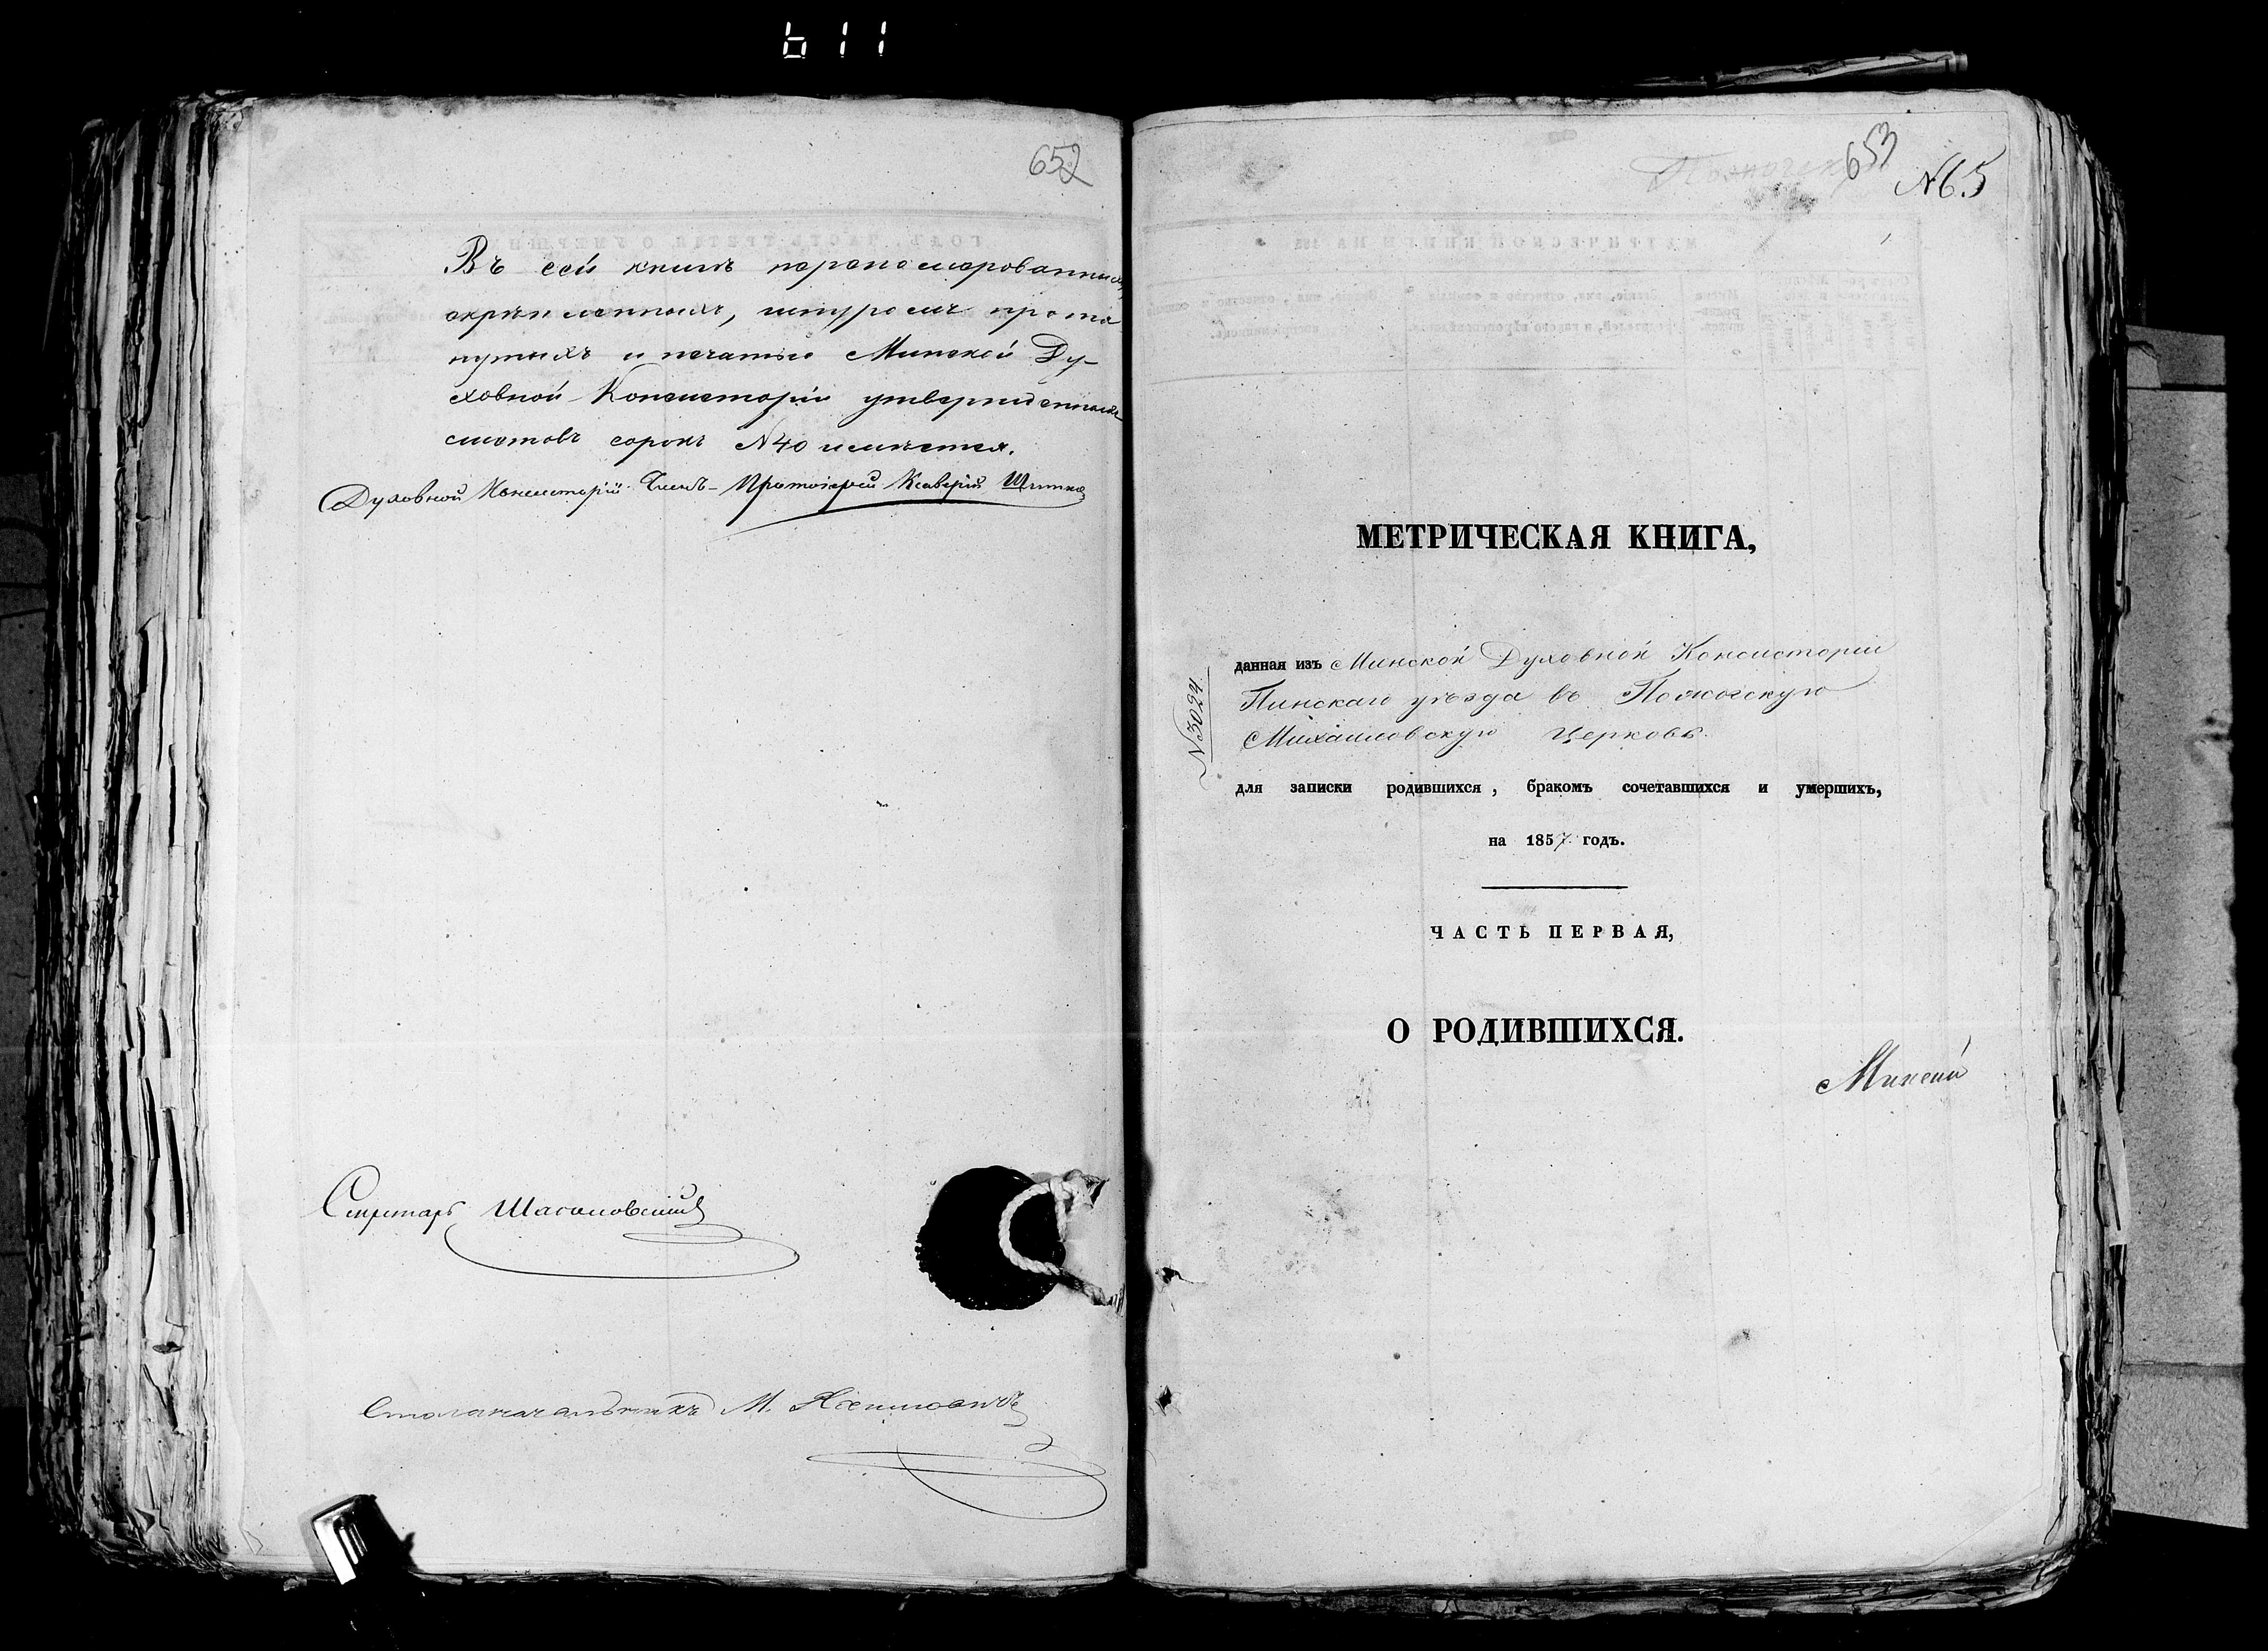 611
652
Въ сей книгѣ перенамерованныхъ,
скрѣпленныхъ, шнуромъ протя
нутыхъ и печатью Минской Ду-
ховной Консисторіи утвержденныхъ
листовъ сорокъ №40 имѣется.
Духовной Консисторіи Членъ - Протоіерей Ксаверій
Секретарь
Столоначальникъ М.
653
№65
МЕТРИЧЕСКАЯ КНИГА,
данная изъ Минской Духовной Консисторіи
Пинскаго уѣзда въ
Михайловскую Церковь.
№3024
для записки родившихся, бракомъ сочетавшихся и умершихъ,
на 1857 годъ.
ЧАСТЬ ПЕРВАЯ,
О РОДИВШИХСЯ.